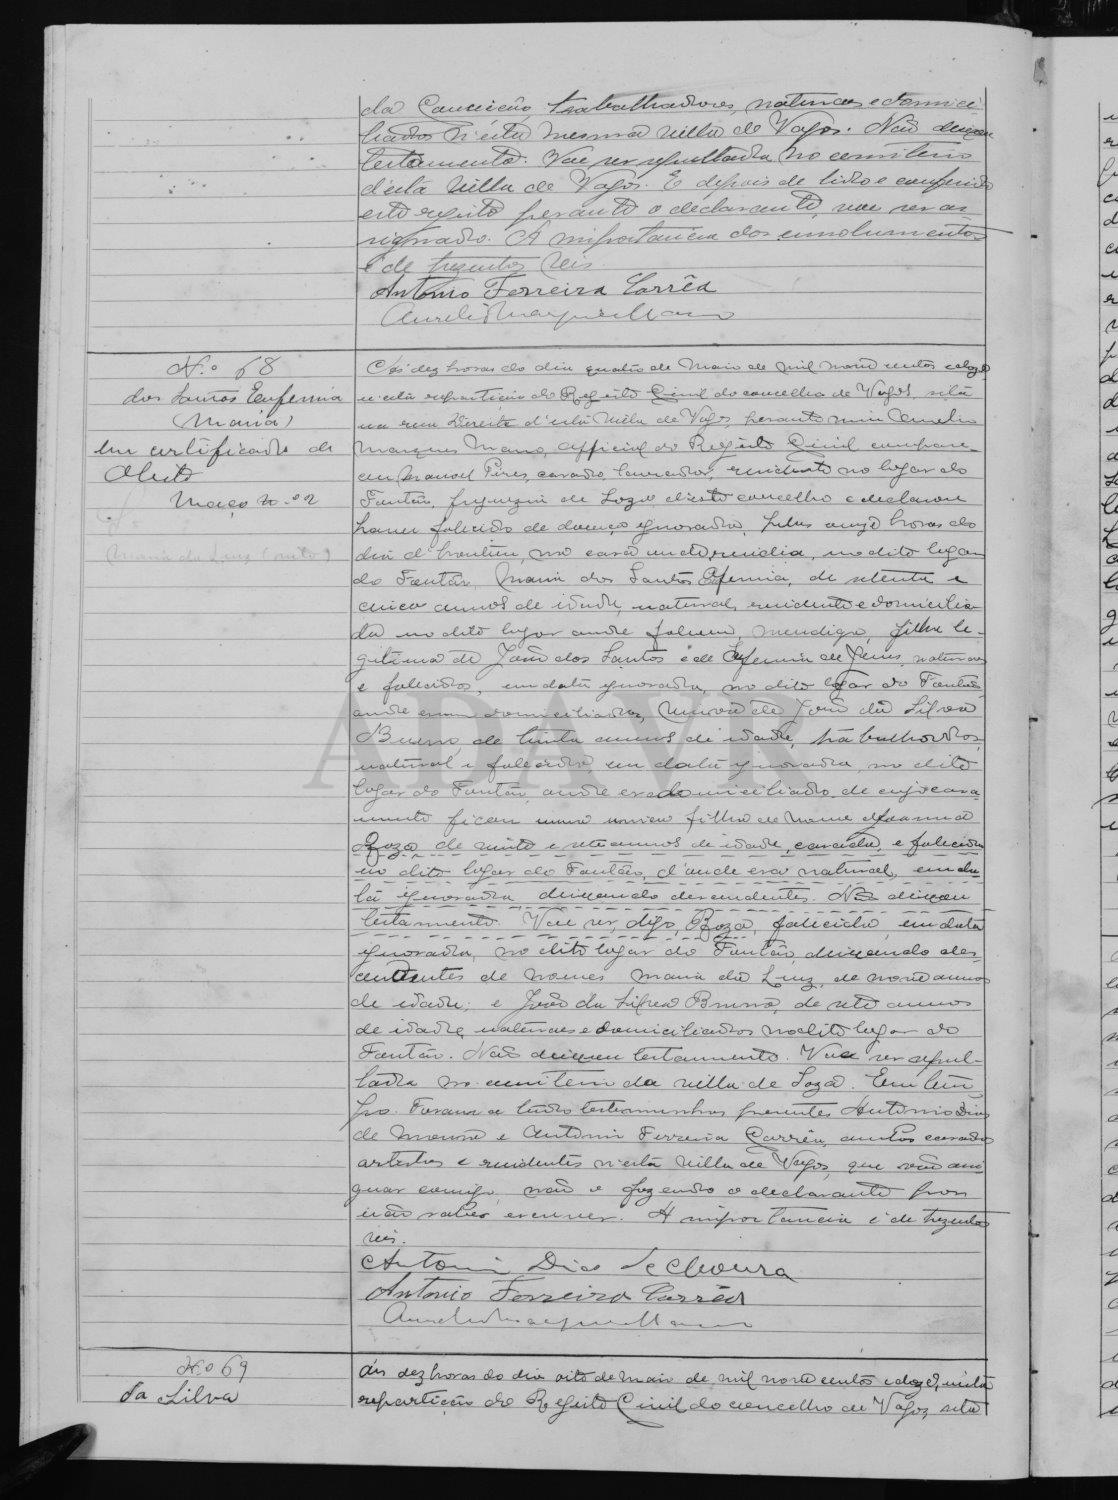 da Conceição, trabalhadores, naturaes e domici-
liados n'esta mesma villa de Vagos. Não deixou
testamento. Vae ser sepultada no cemiterio
d'esta Villa de Vagos. E depois de lido e conferido
este registo perante o declarante, vae ser as-
signado. A importancia dos emolumentos
é de trezentos reis.
Antonio Ferreira Corrêa
Aurelio Marques Mano
N.º 68
dos Santos Eufemia
(Maria)
Um certificado de
Obito
Março n.º 2
Maria da Luz (neto)
Ás dez horas do dia quatro de Maio de mil nove centos e doze
n'esta repartição do Registo Civil do concelho de Vagos, sita
na rua Direita d'esta Villa de Vagos, perante mim Aurelio
Marques Mano, official do Registo Civil compare-
ceu Manoel Pires, casado, lavrador, residente no logar do
Fontão, freguezia de Soza d'este concelho e declarou
haver falecido de doença ignorada, pelas onze horas do
dia d'hontem, na casa onde residia, no dito logar
do Fontão, Maria dos Santos Eufemia, de setenta e
cinco annos de idade, natural, residente e domicilia-
da no dito logar onde faleceu, mendiga, filha le-
gitima de João dos Santos e de Eufemia de Jesus, naturaes
e falecidos, em data ignorada, no dito logar do Fontão,
onde eram domiciliados, viuva de João da Silva
Bueno, de trinta annos de idade, trabalhador,
natural e falecido, em data ignorada, no dito
logar do Fontão, onde era domiciliado, de cujo casa-
mento ficou uma unica filha de nome Joanna
Roza, de vinte e sete annos de idade, casada, e falecida
no dito logar do Fontão, d'onde era natural, em da-
ta ignorada, deixando descendentes. Não deixou
testamento. Vae ser, digo, Roza, falecida, em data
ignorada, no dito logar do Fontão, deixando des-
cendentes de nomes Maria da Luz, de nove annos
de idade; e João da Silva Bueno, de sete annos
de idade, naturaes e domiciliados no dito logar do
Fontão. Não deixou testamento. Vae ser sepul-
tada no cemiterio da villa de Soza. Em tem-
po. Foram a tudo testemunhas presentes Antonio Dias
de Moura e Antonio Ferreira Corrêa, ambos casados
artistas e residentes n'esta Villa de Vagos, que vão assi-
gnar comigo, não o fazendo o declarante por
não saber escrever. A importancia é de trezentos
reis.
Antonio Dias de Moura
Antonio Ferreira Corrêa
Aurelio Marques Mano
N.º 69
da Silva
Ás dez horas do dia oito de Maio de mil nove centos e doze, n'esta
repartição do Registo Civil do concelho de Vagos, sita
ADAVR